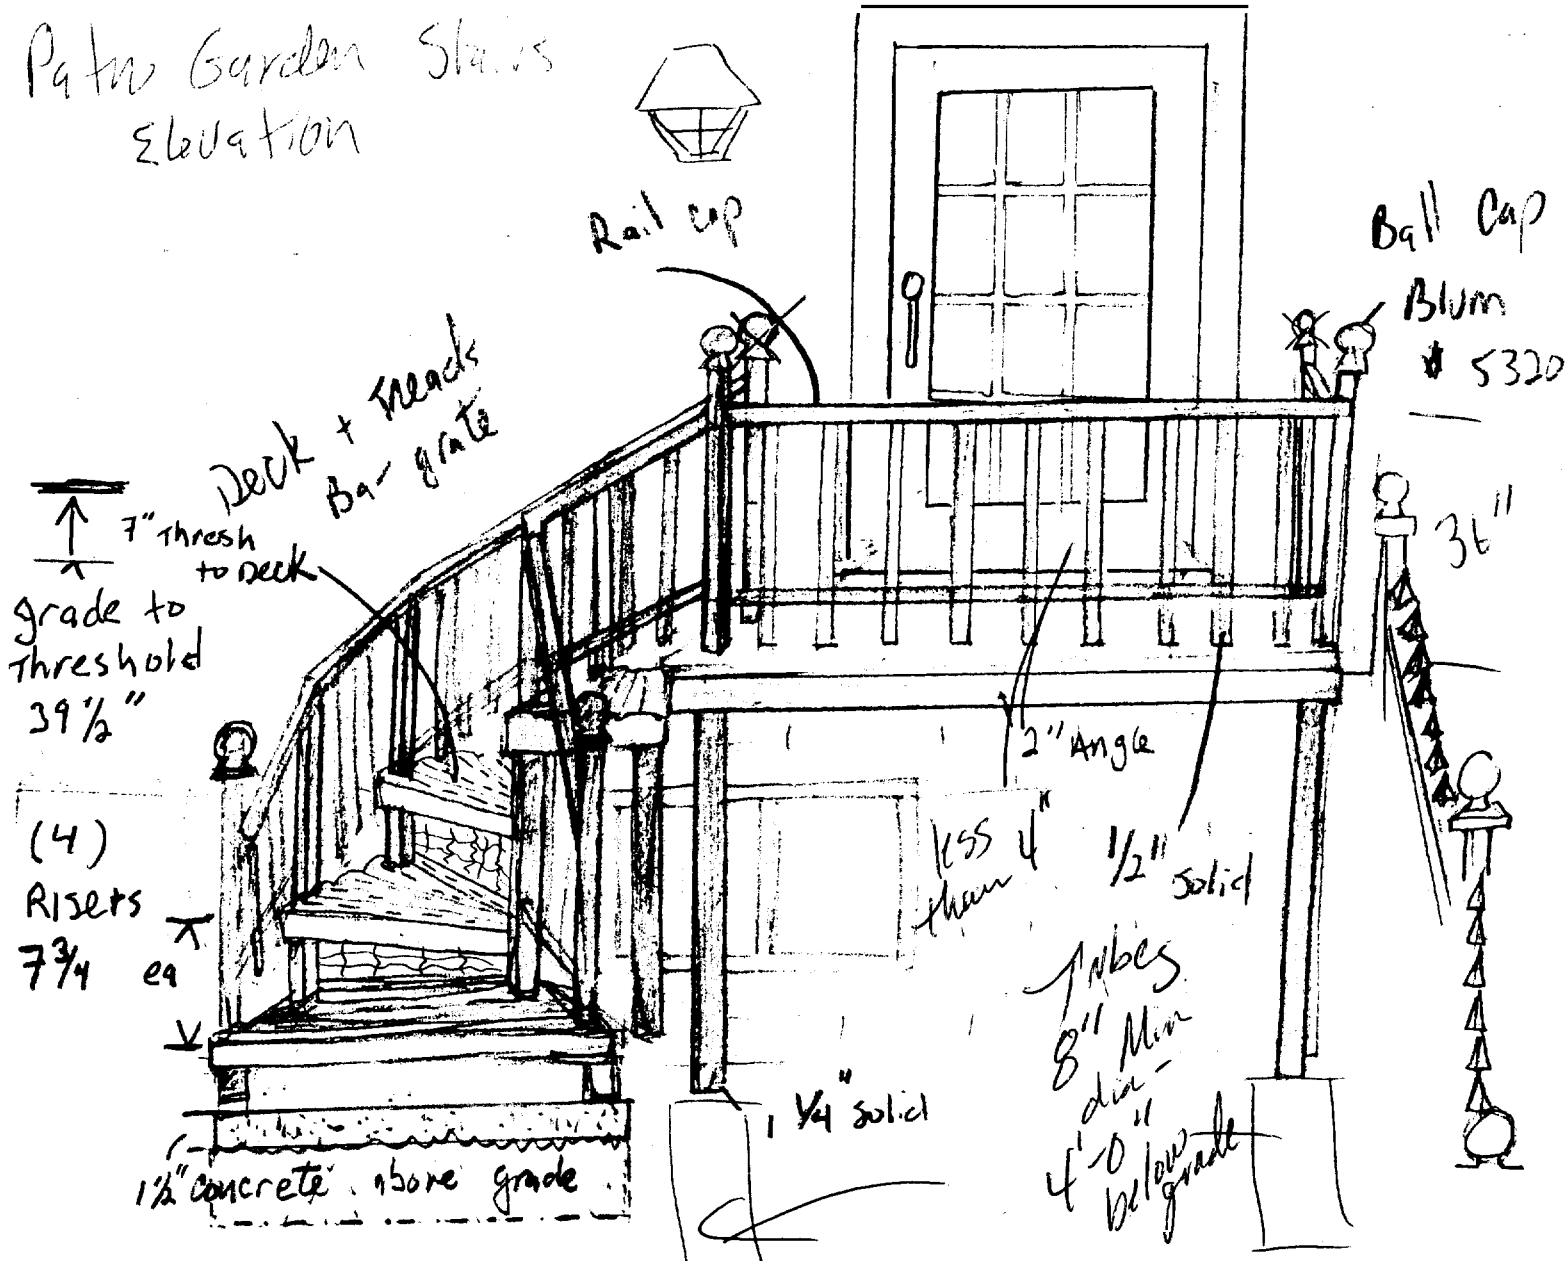 Patio Garden Stairs
Elevation
Rail cap
Ball Cap
Blum
# 5320
Deck + Treads
Bar grate
7" Thresh
to Deck
grade to
Threshold
39 1/2"
36"
2" Angle
less
than 4"
1/2" solid
(4)
Risers
7 3/4 ea
Tubes
8" Min
dia-
4'-0"
below
grade
1 1/4" solid
1 1/2" concrete above grade